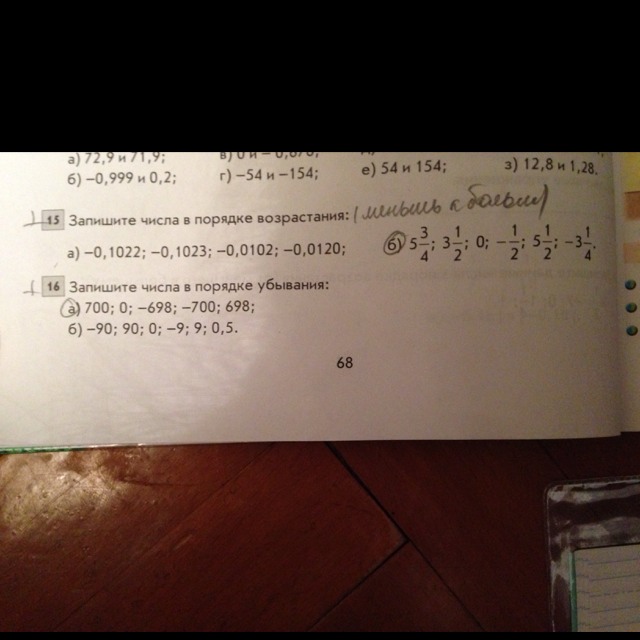 а) 72,9 и 71,9;
б) −0,999 и 0,2; г) −54 и −154; е) 54 и 154; з) 12,8 и 1,28.
15 Запишите числа в порядке возрастания: (меньш к больш)
а) −0,1022; −0,1023; −0,0102; −0,0120; б) 5 3/4; 3 1/2; 0; −1/2; 5 1/2; −3 1/4.
16 Запишите числа в порядке убывания:
а) 700; 0; −698; −700; 698;
б) −90; 90; 0; −9; 9; 0,5.
68